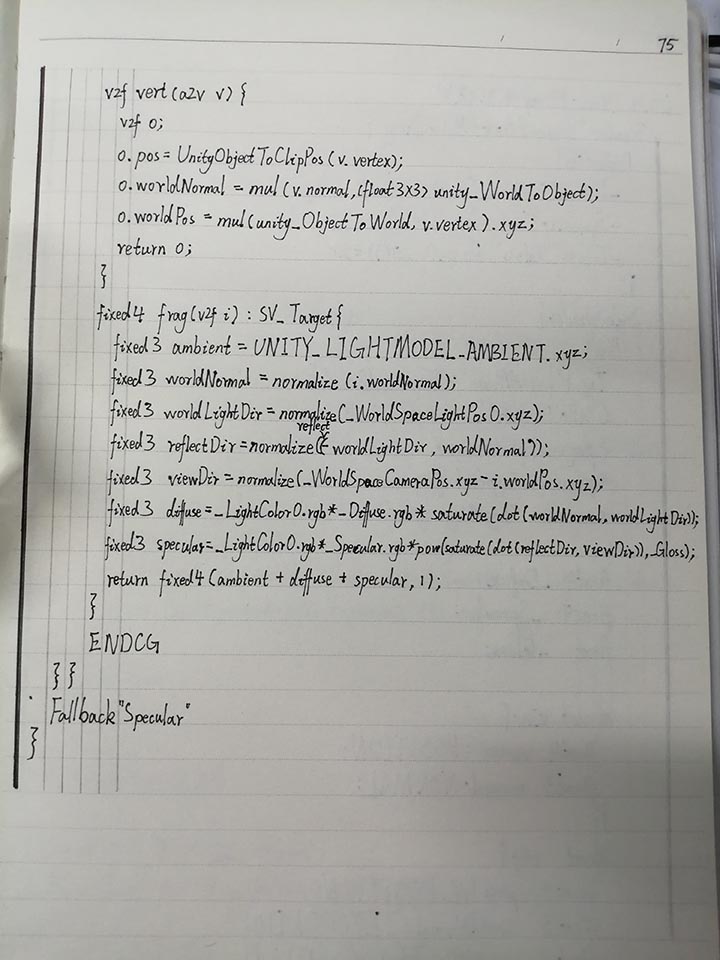 75
v2f vert(a2v v) {
v2f o;
o.pos = UnityObjectToClipPos(v.vertex);
o.worldNormal = mul(v.normal,(float3x3) unity_WorldToObject);
o.worldPos = mul(unity_ObjectToWorld, v.vertex).xyz;
return o;
}
fixed4 frag(v2f i) : SV_Target{
fixed3 ambient = UNITY_LIGHTMODEL_AMBIENT.xyz;
fixed3 worldNormal = normalize (i.worldNormal);
fixed3 worldLightDir = normalize(_WorldSpaceLightPos0.xyz);
fixed3 reflectDir = normalize(reflect(-worldLightDir, worldNormal));
fixed3 viewDir = normalize(_WorldSpaceCameraPos.xyz - i.worldPos.xyz);
fixed3 diffuse = _LightColor0.rgb*_Diffuse.rgb* saturate(dot(worldNormal, worldLightDir));
fixed3 specular=_LightColor0.rgb*_Specular.rgb*pow(saturate(dot(reflectDir, viewDir)),_Gloss);
return fixed4(ambient + diffuse + specular, 1);
}
ENDCG
}}
Fallback"Specular"
}